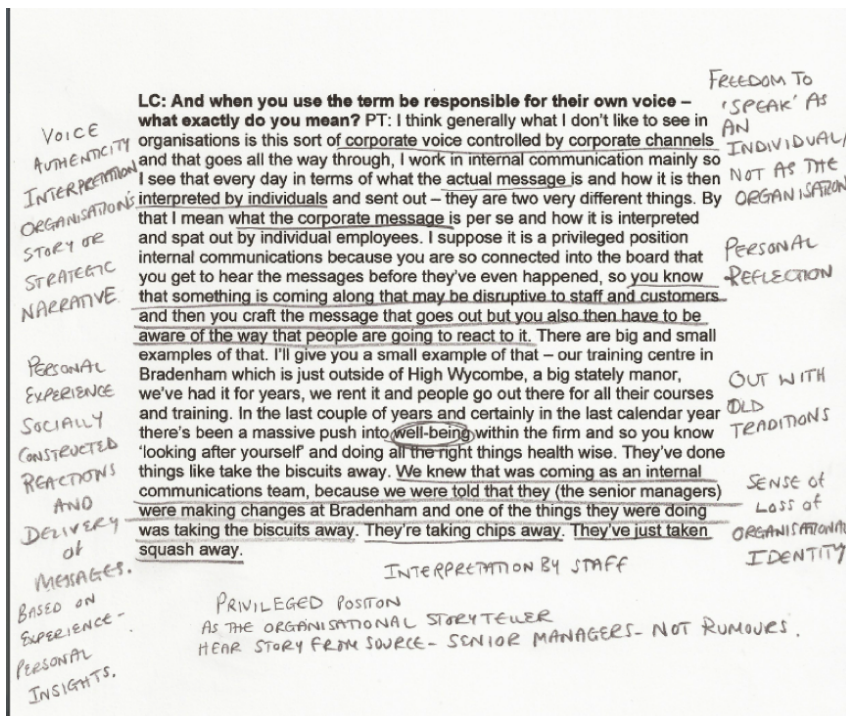 VOICE
AUTHENTICITY
INTERPRETATION
ORGANISATION'S
STORY OR
STRATEGIC
NARRATIVE
PERSONAL
EXPERIENCE
SOCIALLY
CONSTRUCTED
REACTIONS
AND
DELIVERY
of
MESSAGES.
BASED ON
EXPERIENCE -
PERSONAL
INSIGHTS.
LC: And when you use the term be responsible for their own voice –
what exactly do you mean? PT: I think generally what I don't like to see in
organisations is this sort of corporate voice controlled by corporate channels
and that goes all the way through, I work in internal communication mainly so
I see that every day in terms of what the actual message is and how it is then
interpreted by individuals and sent out – they are two very different things. By
that I mean what the corporate message is per se and how it is interpreted
and spat out by individual employees. I suppose it is a privileged position
internal communications because you are so connected into the board that
you get to hear the messages before they've even happened, so you know
that something is coming along that may be disruptive to staff and customers
and then you craft the message that goes out but you also then have to be
aware of the way that people are going to react to it. There are big and small
examples of that. I'll give you a small example of that – our training centre in
Bradenham which is just outside of High Wycombe, a big stately manor,
we've had it for years, we rent it and people go out there for all their courses
and training. In the last couple of years and certainly in the last calendar year
there's been a massive push into well-being within the firm and so you know
'looking after yourself' and doing all the right things health wise. They've done
things like take the biscuits away. We knew that was coming as an internal
communications team, because we were told that they (the senior managers)
were making changes at Bradenham and one of the things they were doing
was taking the biscuits away. They're taking chips away. They've just taken
squash away.
FREEDOM TO
'SPEAK' AS
AN
INDIVIDUAL/
NOT AS THE
ORGANISATION
PERSONAL
REFLECTION
OUT WITH
OLD
TRADITIONS
SENSE of
LOSS of
ORGANISATIONAL
IDENTITY
INTERPRETATION BY STAFF
PRIVILEGED POSITON
AS THE ORGANISATIONAL STORYTELLER
HEAR STORY FROM SOURCE - SENIOR MANAGERS - NOT RUMOURS.